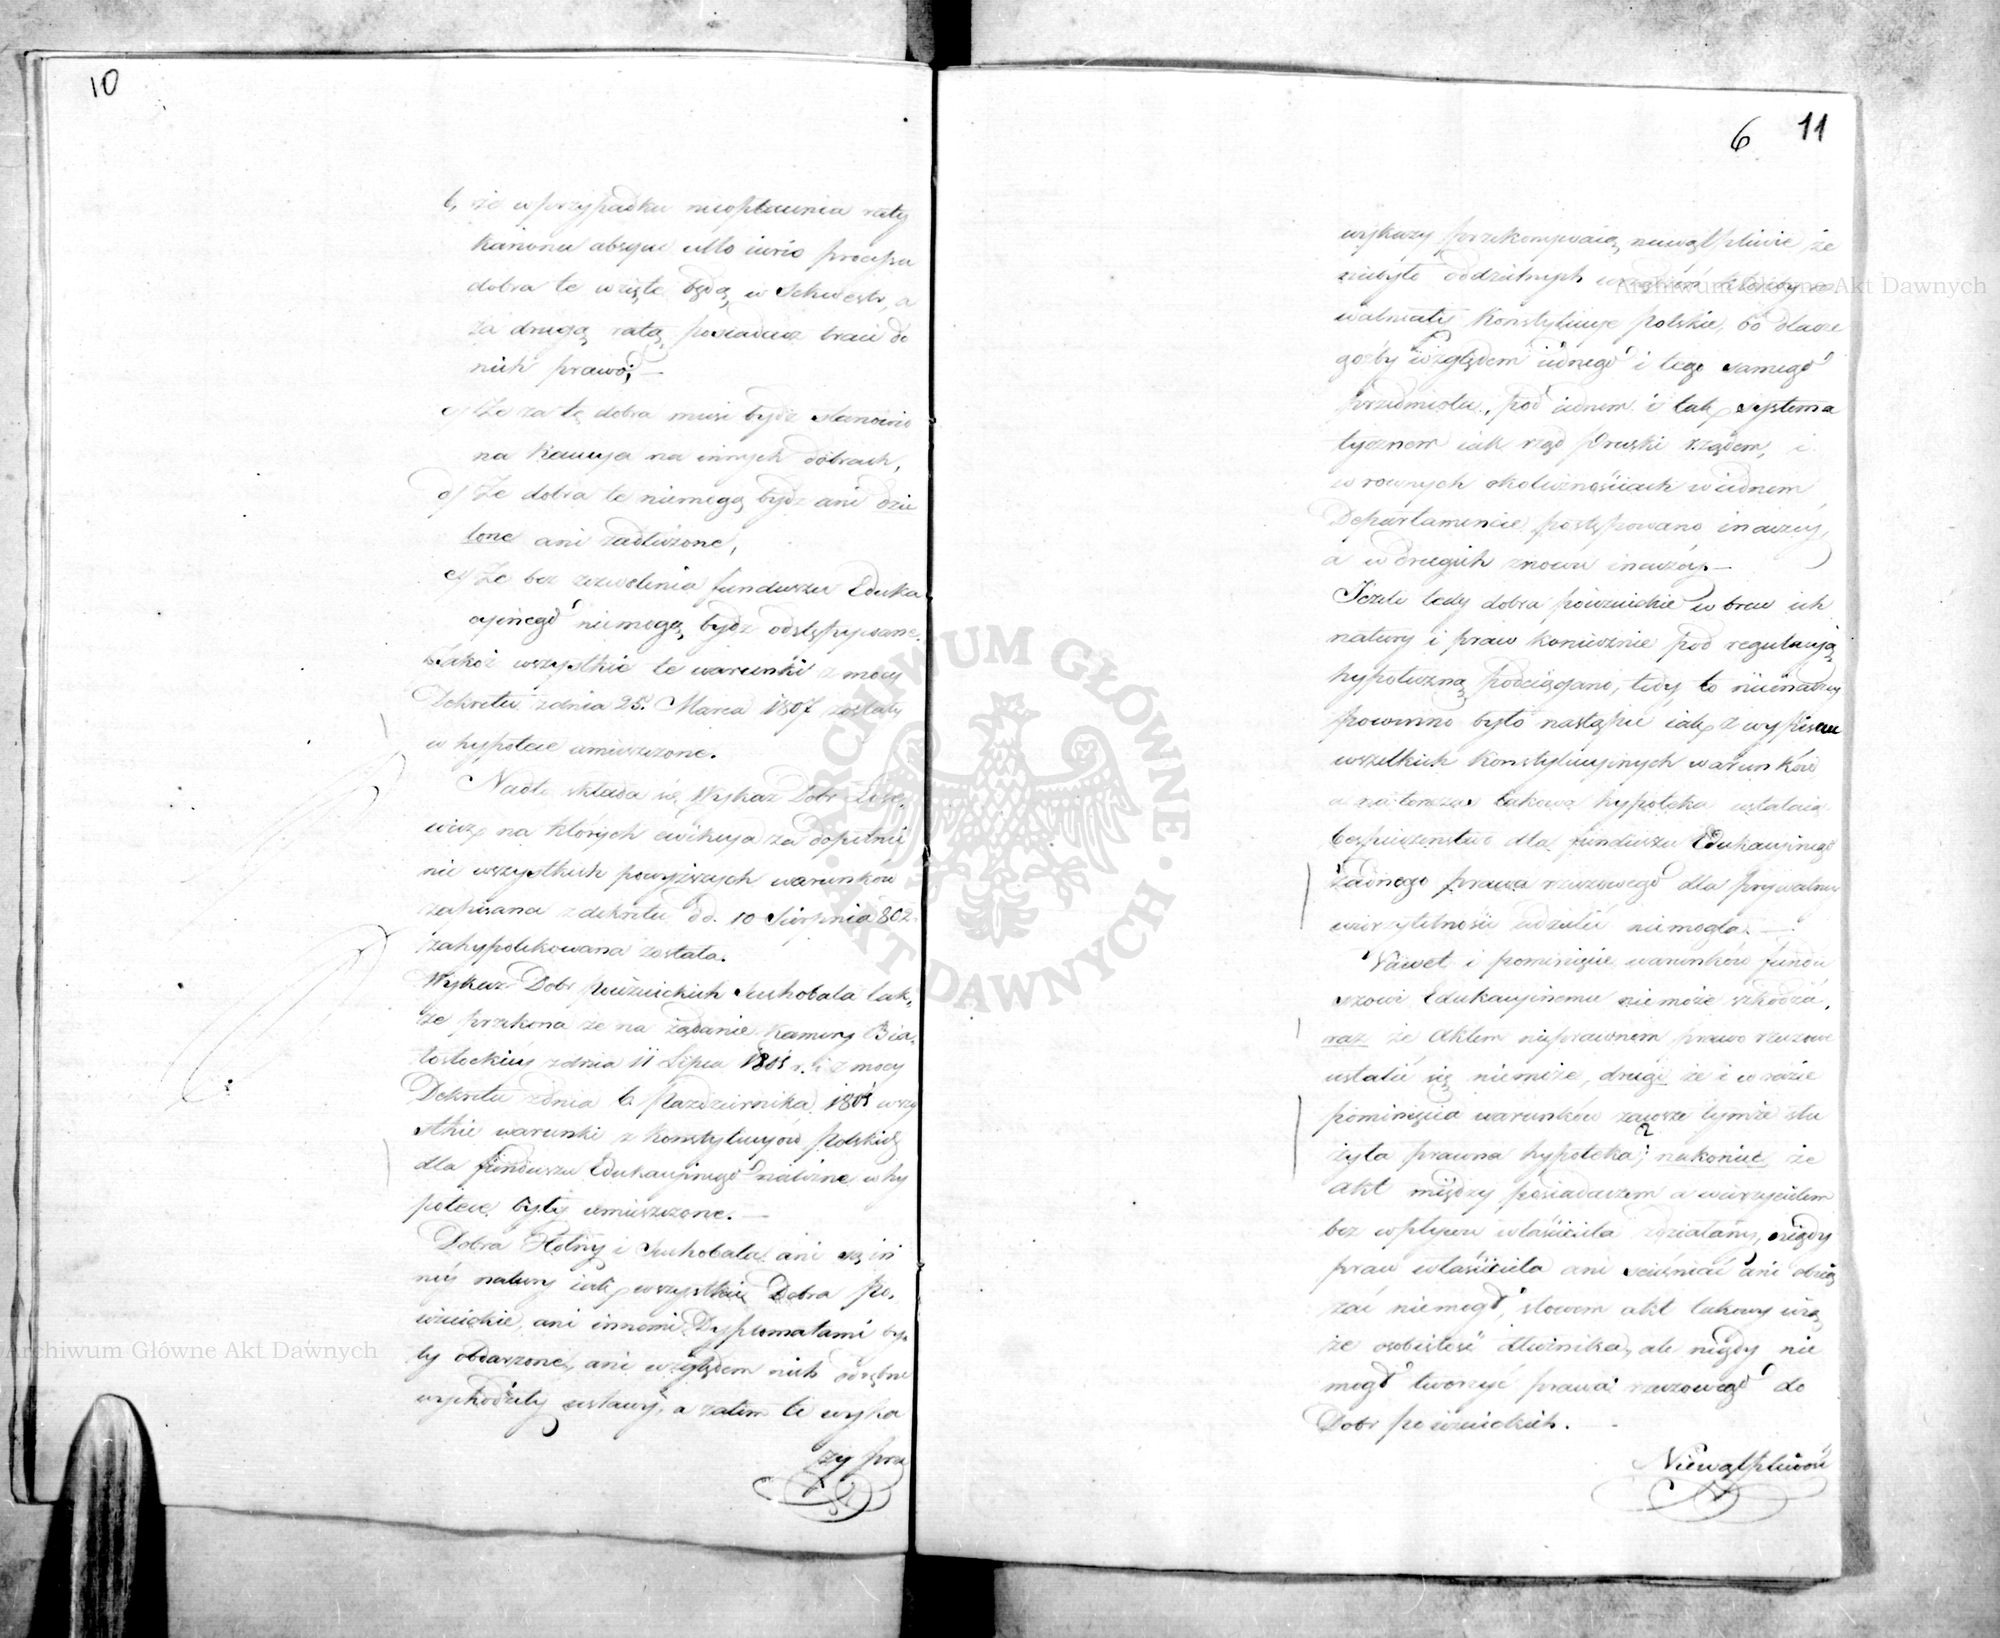 10
b, że w przypadku nieopłacenia raty
kanonu absque ullo iuris processu
dobra te wzięte będą w Sekwestr, a
za drugą ratą posiadacz traci do
nich prawo; —
c/ Że za tę dobra musi bydź stanowio
na Kaucya na innych dobrach,
d/ Że dobra te niemogą bydź ani dzie
lone ani zadłużone,
e/ Że bez zezwolenia funduszu Eduka
cyinego niemogą bydź odstępywane.
Jakoż wszystkie te warunki z mocy
Dekretu z dnia 25. Marca 1807 zostały
w hypotece umieszczone.
Nadto składa się Wykaz Dobr
na których ewikcya za dopełnie
nie wszystkich powyższych warunków
zapisana z dekretu dd. 10 Sierpnia 802.
zahypotekowana została.
Wykaz Dobr Poiezuickich Suchobala tak-
że przekona że na żądanie Kamery Bia-
łostockiey z dnia 11 Lipca 1805 r. i z mocy
Dekretu z dnia 6 Pazdziernika 1805 wszy
stkie warunki z konstytucyów polskich
dla funduszu Edukacyinego ważne w hy
potece były umieszczone. —
Dobra Hołny i Suchobala ani są in
ney natury iak wszystkie Dobra Po-
iezuickie, ani innemi Dyplomatami by-
ły obdarzone, ani względem nich odrębne
wychodziły ustawy, a zatem te wyka
zy prze
6 11
wykazy przekonywaią niewątpliwie że
niebyło oddzielnych względów któreby u-
walniały Konstytucye polskie, bo dlacze
goźby względem iednego i tego samego
przedmiotu, pod iednem i tak systema
tycznem iak rząd Pruski rządem, i
w rownych okolicznościach w iednem
Departamencie postępowano inaczey,
a w drugich znowu inaczey. —
Jeżeli tedy dobra poiezuickie w brew ich
natury i praw koniecznie pod regulacyą
hypoteczną podciągano, tedy to nieinaczey
powinno było nastąpić iak z wypisem
wszelkich Konstytucyinych warunków
a natenczas takowa hypoteka ustalaiąc
bezpieczenstwo dla funduszu Edukacyinego
żadnego prawa rzeczowego dla prywatney
wierzytelności udzielić niemogła. —
Nawet i pominięcie warunków fundu
szowi Edukacyinemu niemoże szkodzić,
raz że Aktem nieprawnem prawo rzeczowe
ustalić się niemoże, drugi że i w razie
pominięcia warunków zawsze tymże słu
żyła prawna hypoteka; nakoniec, że
akt między posiadaczem a wierzycielem
bez wpływu właściciela zdziałany, nigdy
praw właściciela ani scieśniać ani obcią
żać niemógł, słowem akt takowy wią
że osobistość dłużnika, ale nigdy nie
mógł tworzyć prawa rzeczowego do
Dobr poiezuickich. —
Niewątpliwość
ARCHIWUM GŁÓWNE AKT DAWNYCH
Archiwum Główne Akt Dawnych
Archiwum Główne Akt Dawnych